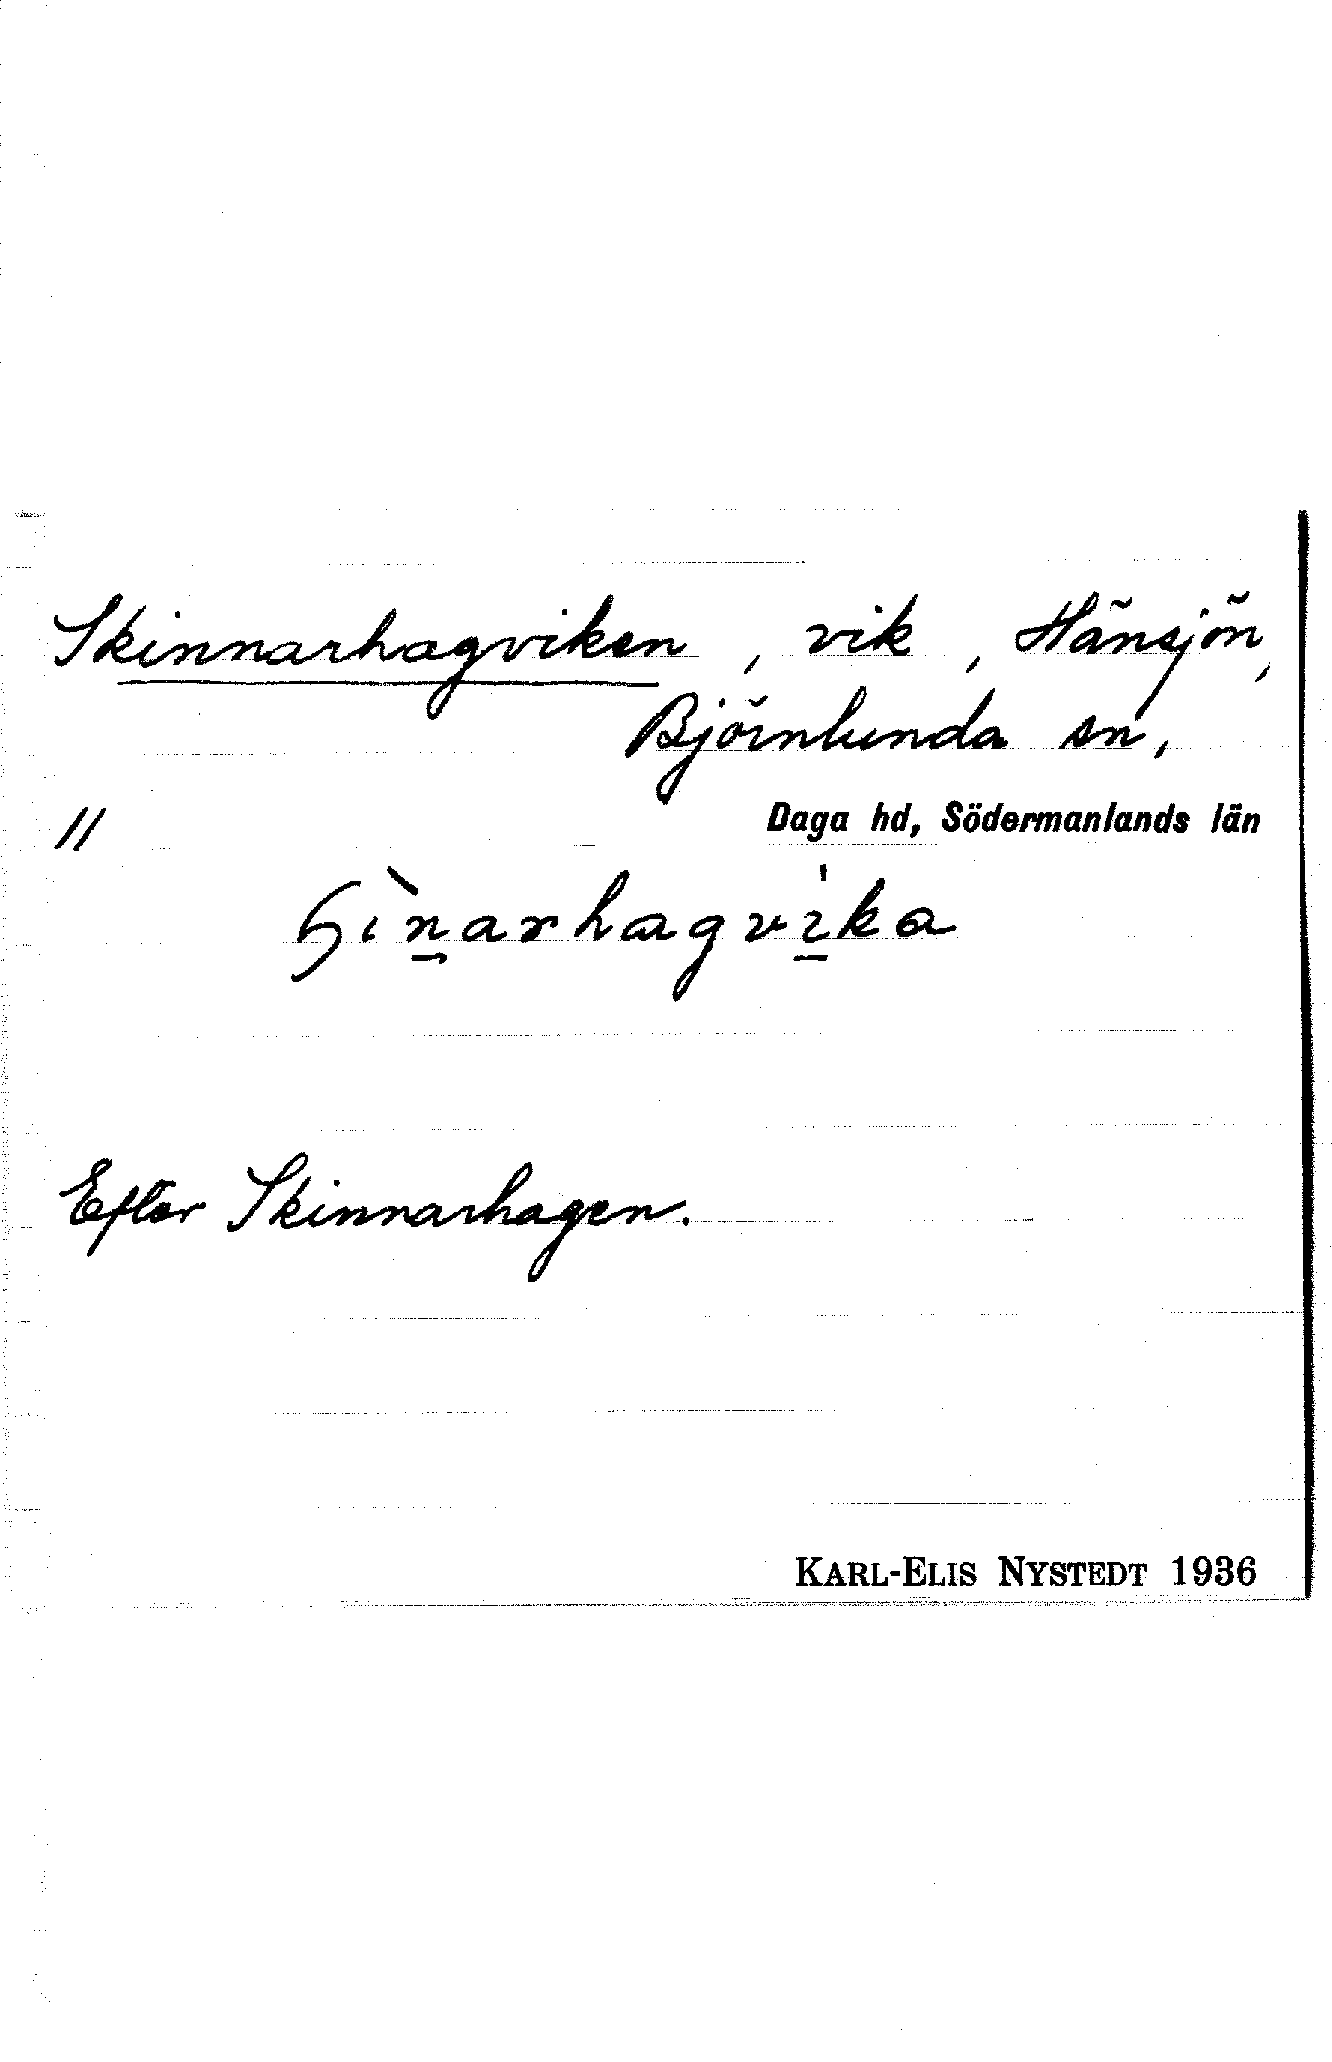 Skinnarhagviken, vik, Hänsjön,
Björnlunda sn,
Daga hd, Södermanlands län
11
ɧìn̲arhagvi̲̍ka
Efter Skinnarhagen.
KARL-ELIS NYSTEDT 1936